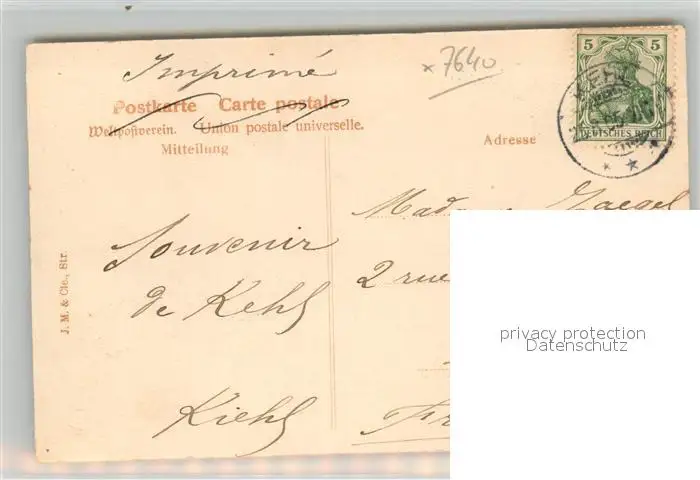 Imprimé
× 7640
5 5
DEUTSCHES REICH
Postkarte Carte postale
Weltpostverein. Union postale universelle.
Mitteilung
Adresse
KEHL
Souvenir
de Kehl
Kiehl
2 rue
J. M. & Cie., Str.
privacy protection
Datenschutz